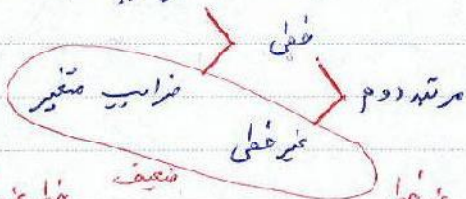 خطی
ضرایب متغیر
مرتبه دوم
غیر خطی
ضعیف